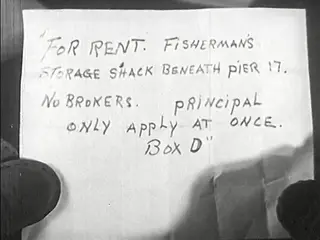 "FOR RENT. FISHERMAN'S
STORAGE SHACK BENEATH PIER 17.
NO BROKERS. PRINCIPAL
ONLY APPLY AT ONCE.
BOX D"